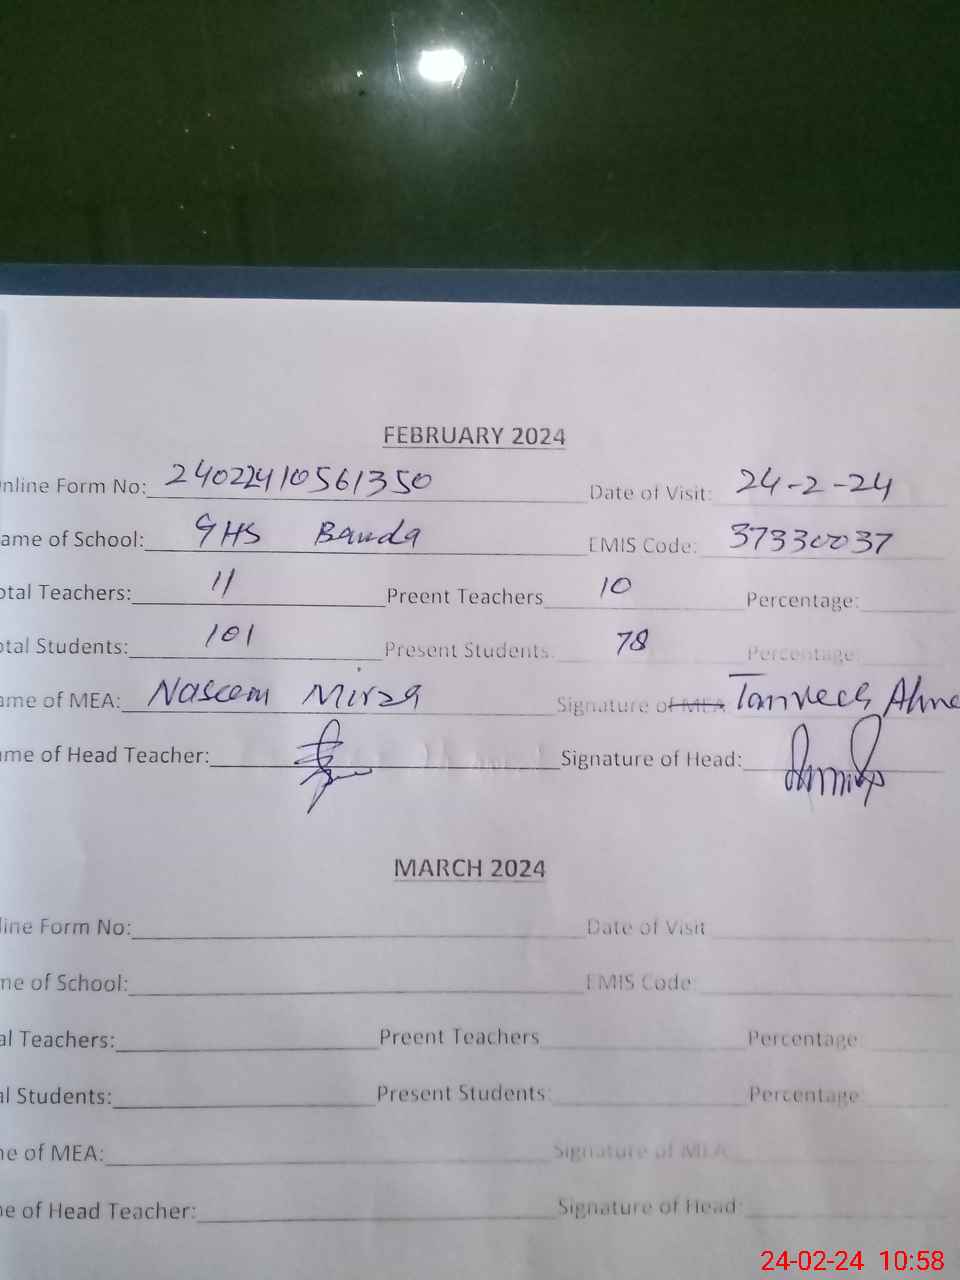 FEBRUARY 2024
nline Form No: 24022410561350 Date of Visit: 24-2-24
ame of School: GHS Banda EMIS Code: 37330037
otal Teachers: 11 Preent Teachers 10 Percentage:
otal Students: 101 Present Students: 78 Percentage:
ame of MEA: Naseem Mirza Signature of MEA Tanveer Ahme
me of Head Teacher: Signature of Head:
MARCH 2024
line Form No: Date of Visit
me of School: EMIS Code:
al Teachers: Preent Teachers Percentage:
al Students: Present Students: Percentage:
ne of MEA: Signature of MEA:
e of Head Teacher: Signature of Head:
24-02-24 10:58